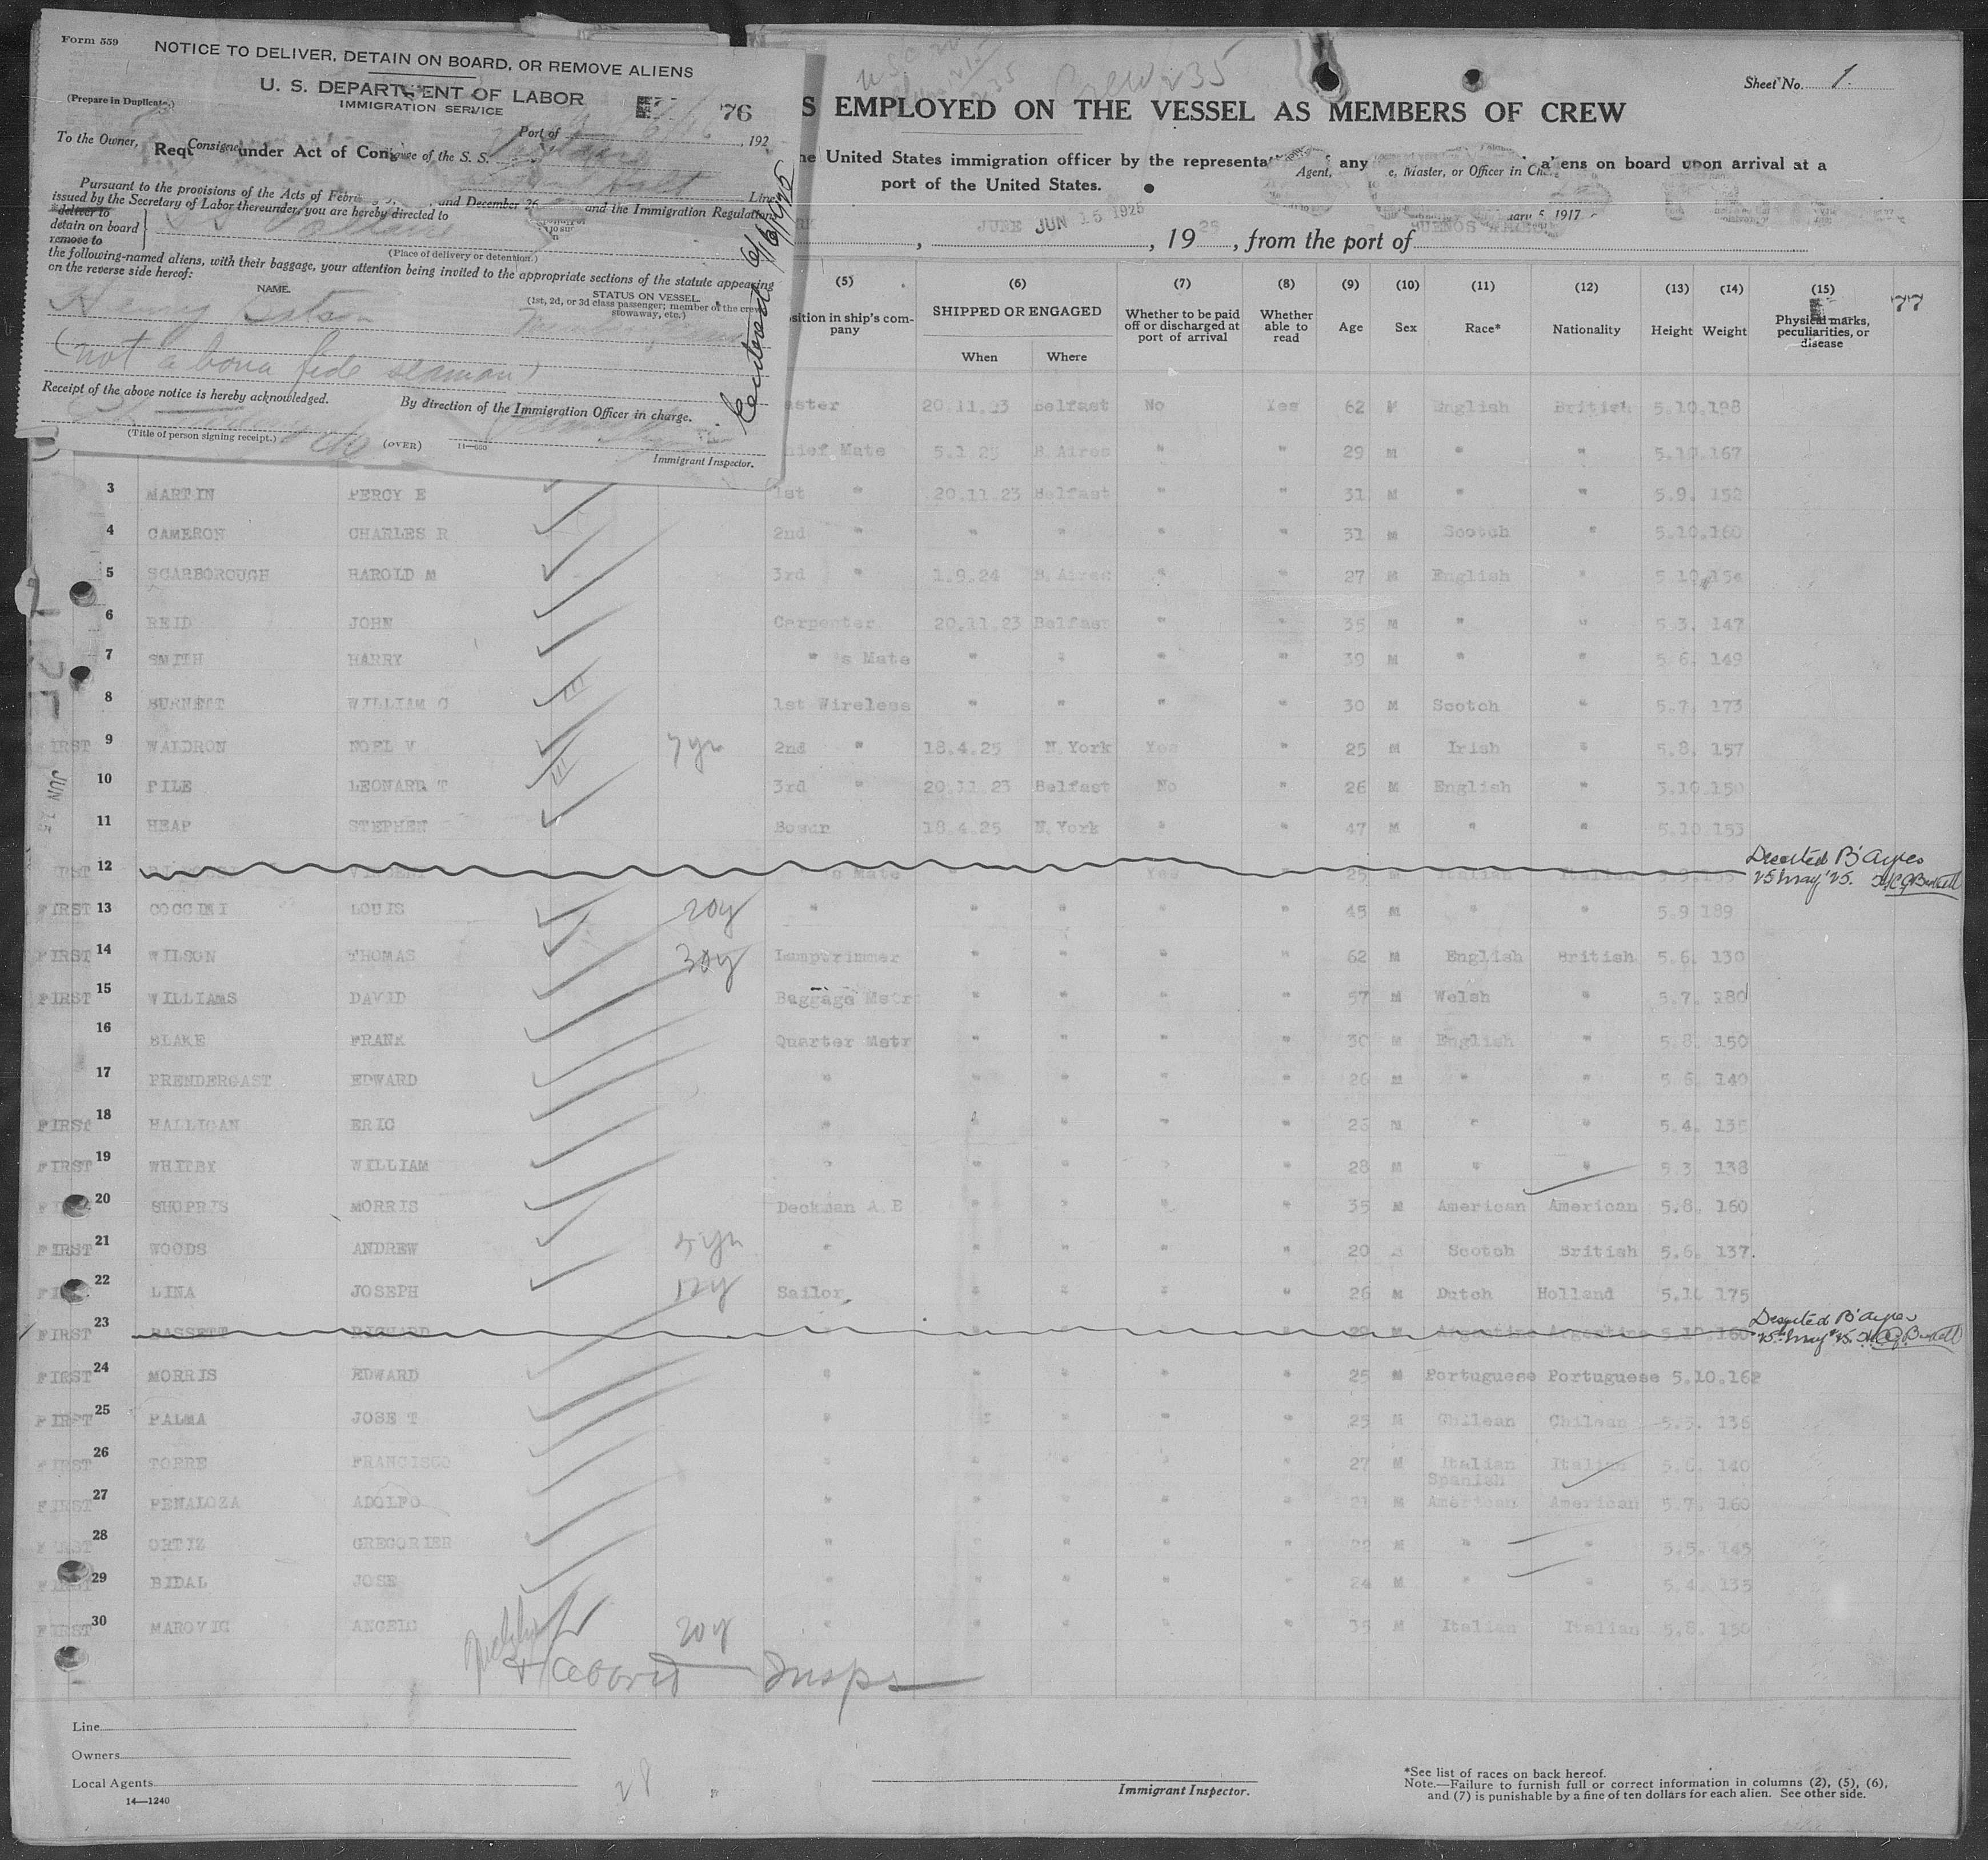 Form 559
NOTICE TO DELIVER, DETAIN ON BOARD, OR REMOVE ALIENS
U. S. DEPARTMENT OF LABOR
IMMIGRATION SERVICE
76
(Prepare in Duplicate.)
Port of
, 192
To the Owner,
Consignee
of the S. S.
Line
Pursuant to the provisions of the Acts of
and December 26
and the Immigration Regulations
issued by the Secretary of Labor thereunder, you are hereby directed to
deliver to
detain on board
remove to
(Place of delivery or detention.)
the following-named aliens, with their baggage, your attention being invited to the appropriate sections of the statute appearing
on the reverse side hereof:
NAME.
STATUS ON VESSEL.
(1st, 2d, or 3d class passenger; member of the crew,
stowaway, etc.)
Henry
(not a bona fide seaman)
Receipt of the above notice is hereby acknowledged.
By direction of the Immigration Officer in charge.
(Title of person signing receipt.)
(OVER)
14—660
Immigrant Inspector.
6/16/25
Crew 235
Sheet No. 1.
S EMPLOYED ON THE VESSEL AS MEMBERS OF CREW
Required under Act of
United States immigration officer by the
any
aliens on board upon arrival at a
Agent,
Master, or Officer in
port of the United States.
JUNE JUN 15 1925, 1925, from the port of BUENOS
(5) (6) (7) (8) (9) (10) (11) (12) (13) (14) (15) 77
position in ship's company
SHIPPED OR ENGAGED
When Where
Whether to be paid off or discharged at port of arrival
Whether able to read
Age Sex Race* Nationality Height Weight
Physical marks, peculiarities, or disease
Master 20.11.23 Belfast No Yes 62 M English British 5.10.198
Chief Mate 5.1.25 B. Aires " " 29 M " " 5.10.167
3 MARTIN PERCY E 1st " 20.11.23 Belfast " " 31 M " " 5.9. 152
4 CAMERON CHARLES R 2nd " " " " " 31 M Scotch " 5.10.160
5 SCARBOROUGH HAROLD M 3rd " 1.9.24 B. Aires " " 27 M English " 5.10.154
6 REID JOHN Carpenter 20.11.23 Belfast " " 35 M " " 5.3. 147
7 SMITH HARRY " s Mate " " " " 39 M " " 5.6. 149
8 BURNETT WILLIAM G 1st Wireless " " " " 30 M Scotch " 5.7. 173
FIRST 9 WALDRON NOEL V 7yr 2nd " 18.4.25 N.York Yes " 25 M Irish " 5.8. 157
10 PILE LEONARD T 3rd " 20.11.23 Belfast No " 26 M English " 5.10.150
11 HEAP STEPHEN Bosun 18.4.25 N.York " " 47 M " " 5.10.153
FIRST 12 s Mate Yes 25 M Italian Italian
Deserted B'Ayres
25 May '25.
FIRST 13 COCCINI LOUIS 20y " " " " " 45 M " " 5.9 189
FIRST 14 WILSON THOMAS 30y Lamptrimmer " " " " 62 M English British 5.6. 130
FIRST 15 WILLIAMS DAVID Baggage Mstr " " " " 57 M Welsh " 5.7. 180
16 BLAKE FRANK Quarter Mstr " " " " 30 M English " 5.8. 150
17 PRENDERGAST EDWARD " " " " " 26 M " " 5.6. 140
FIRST 18 HALLIGAN ERIC " " " " " 26 M " " 5.4.
FIRST 19 WHITBY WILLIAM " " " " " 28 M " " 5.3. 138
20 MORRIS Deckman A.B " " " " 35 M American American 5.8. 160
FIRST 21 WOODS ANDREW " " " " " 20 Scotch British 5.6. 137.
22 LINA JOSEPH 12y Sailor " " " " 26 M Dutch Holland 5.10 175
FIRST 23 BASSETT RICHARD 29 M Argentine Argentine 5.10.160
Deserted B'Ayres
25 May '25.
FIRST 24 MORRIS EDWARD " " " " " 25 M Portuguese Portuguese 5.10.162
FIRST 25 PALMA JOSE T " " " " " 25 M Chilean Chilean 5.5. 136
FIRST 26 TORRE FRANCISCO " " " " " 27 M Italian Italian 140
Spanish
FIRST 27 PENALOZA ADOLFO " " " " " 21 M American American 5.7. 160
28 ORTIZ GREGORIER " " " " " M " " 5.5. 145
29 BIDAL JOSE " " " " " 24 M " " 5.4. 135
FIRST 30 ANGELO 20y " " " " " 35 M Italian Italian 5.8. 150
Insps
Line
Owners
Local Agents
14—1240
28
Immigrant Inspector.
*See list of races on back hereof.
Note.—Failure to furnish full or correct information in columns (2), (5), (6),
and (7) is punishable by a fine of ten dollars for each alien. See other side.